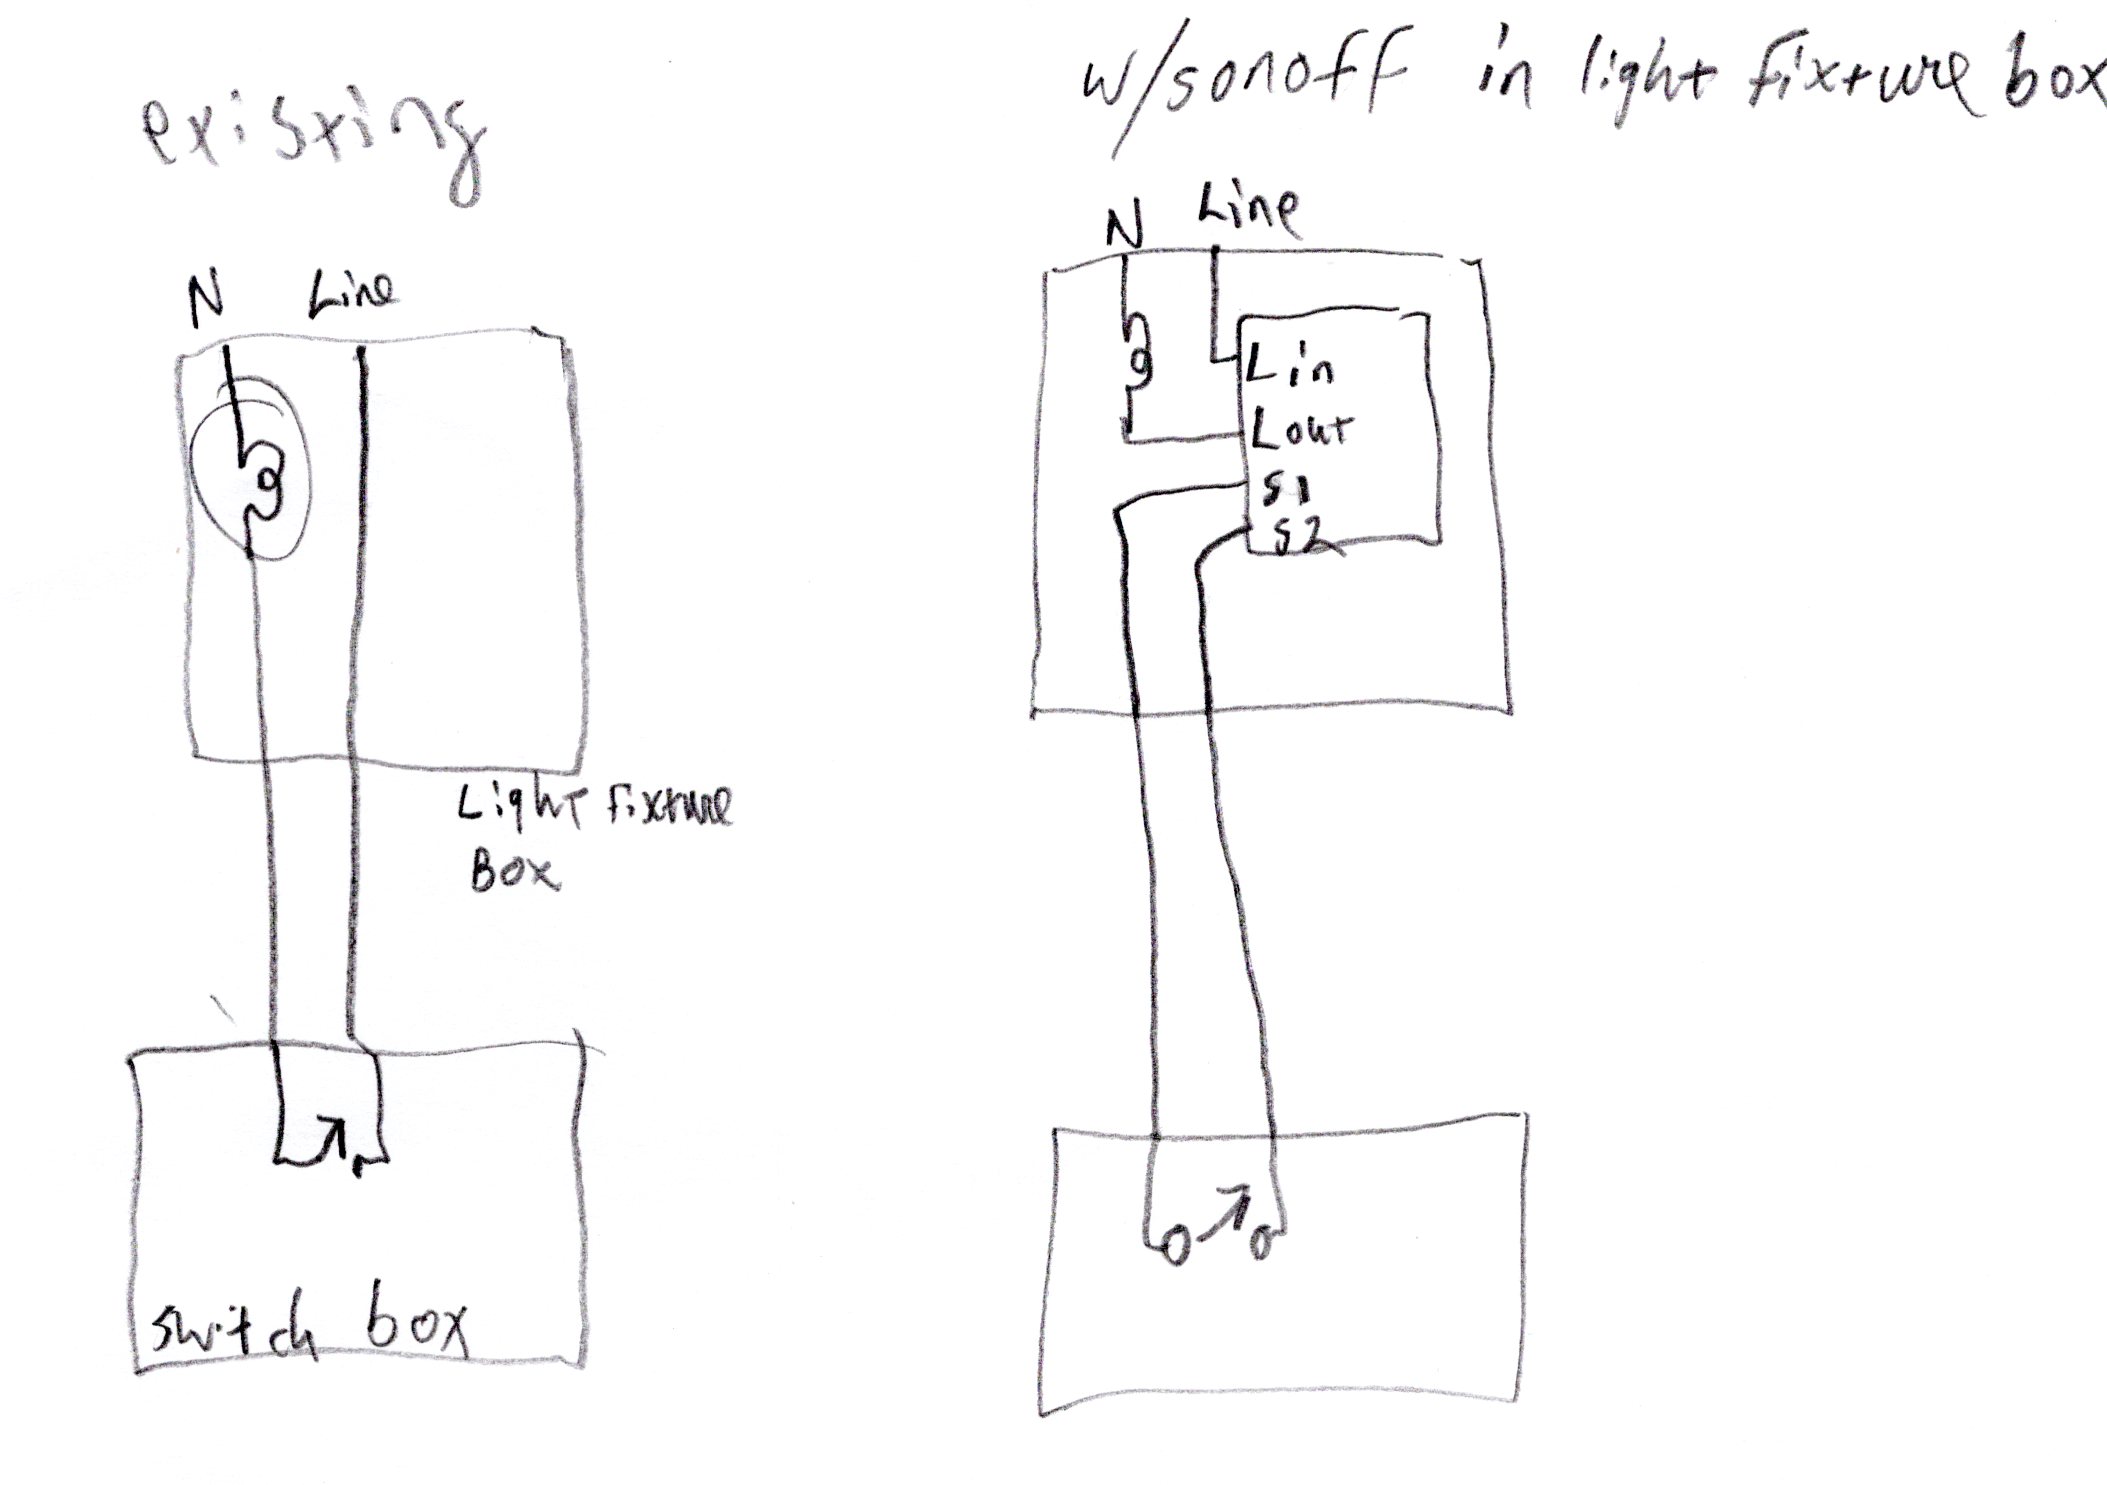 existing
N Line
Light Fixture
Box
switch box
w/sonoff in light fixture box
N Line
Lin
Lout
S1
S2